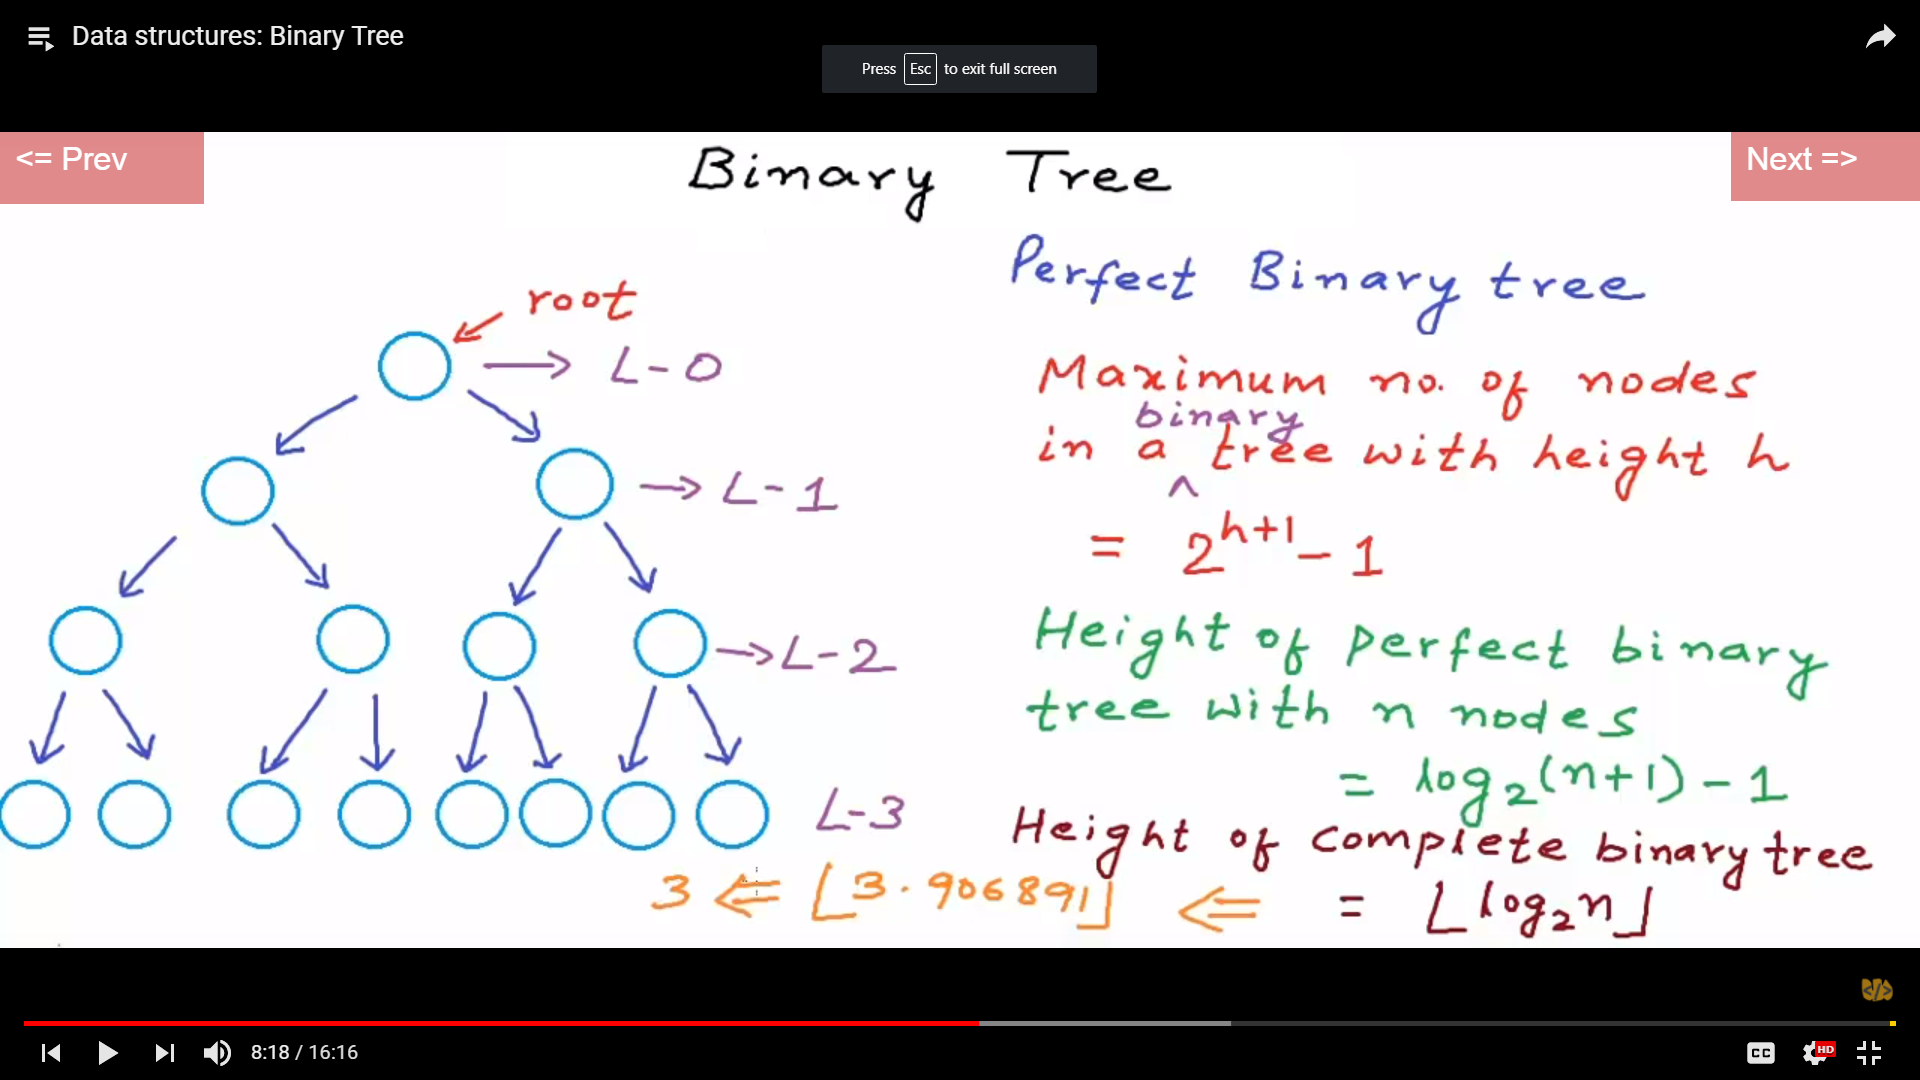 Data structures: Binary Tree
Press Esc to exit full screen
<= Prev
Next =>
Binary Tree
root
L-0
L-1
L-2
L-3
Perfect Binary tree
Maximum no. of nodes
binary
in a ^ tree with height h
= 2^{h+1} - 1
Height of perfect binary
tree with n nodes
= log₂(n+1) - 1
Height of complete binary tree
3 ⇐ ⌊3.906891⌋ ⇐ = ⌊log₂n⌋
8:18 / 16:16
CC
HD